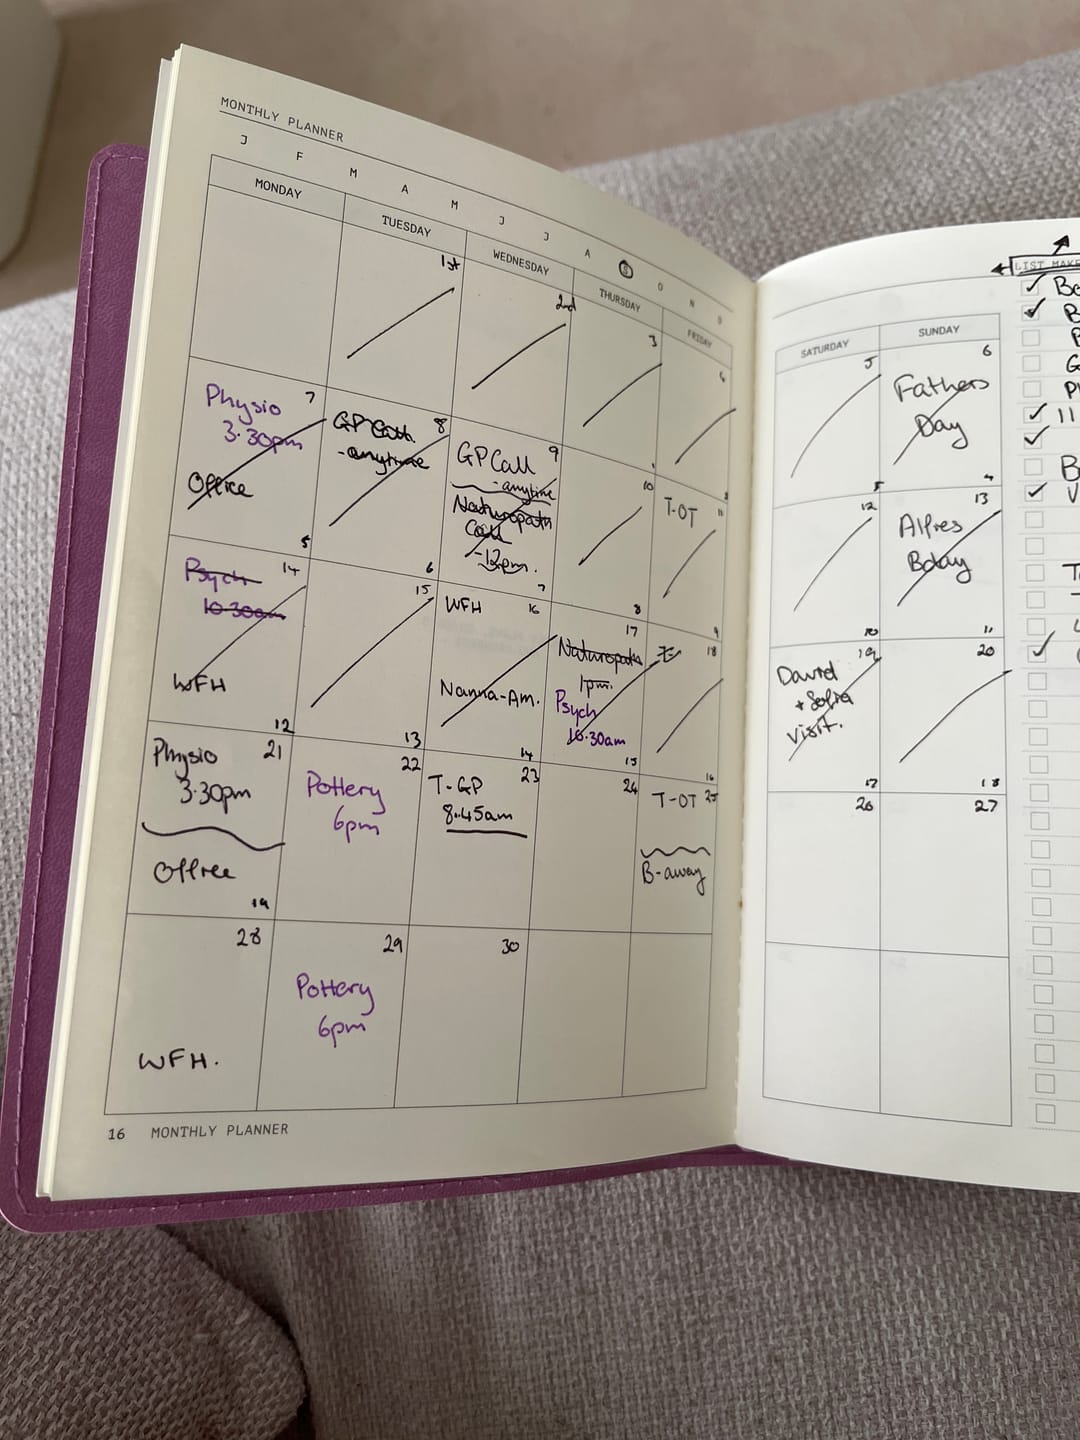 MONTHLY PLANNER
J F M A M J J A S O N D
MONDAY TUESDAY WEDNESDAY THURSDAY FRIDAY
1st 2nd 3 4
7
Physio
3.30pm
Office
5
8
GP Call
- anytime
6
9
GP Call
- anytime
Naturopath
Call
- 12pm.
7
10
8
T-OT 11
9
14
Psych
10.30am
WFH
12
15
13
WFH 16
Nanna-Am.
14
17
Naturopath
1pm.
Psych
10.30am
15
18
16
Physio 21
3.30pm
Office
19
22
Pottery
6pm
T-GP 23
8.45am
24
T-OT 25
B-away
28
WFH.
29
Pottery
6pm
30
16 MONTHLY PLANNER
SATURDAY SUNDAY
5
6
Fathers
Day
12
10
13
Alfies
Bday
11
19
David
+ Sofia
visit.
17
20
18
26 27
LIST MAKE